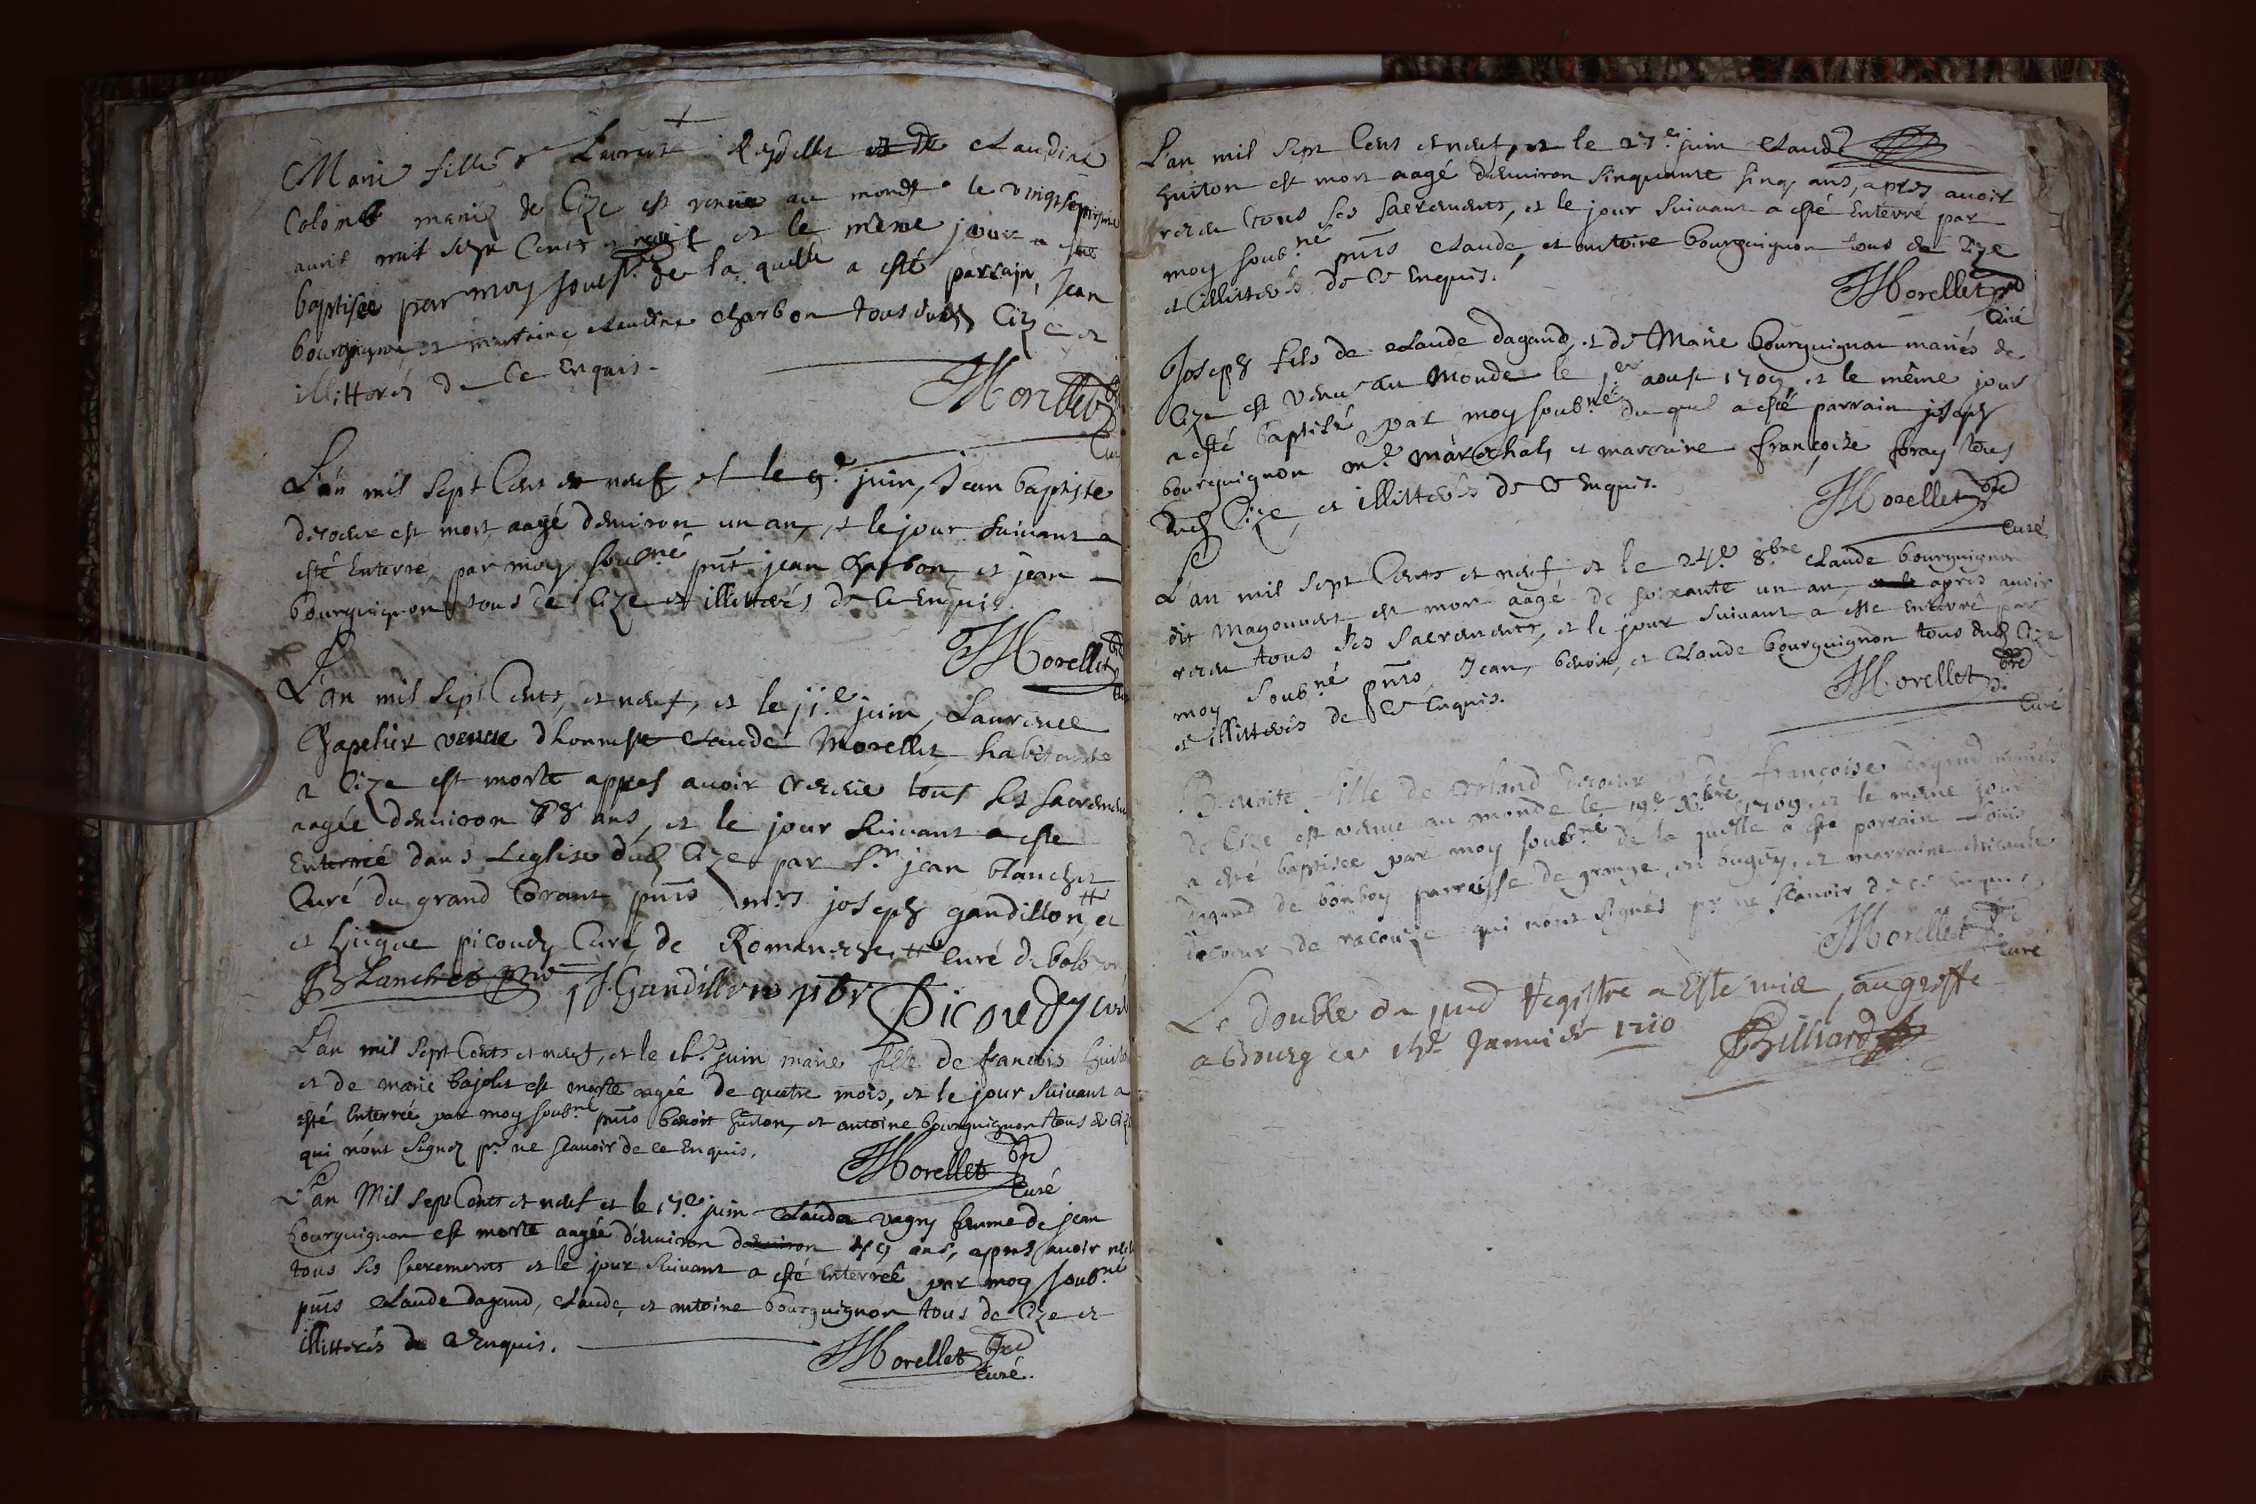 Marie fille de Laurent Reydellet et de Claudine
Colomb mariez de Cize est venue au monde le vingtseptieme
auril mil sept Cents et neuf et le même jour a esté
baptisée par moy soubs.né de la quelle a esté parrain, Jean
bourguignon, et marraine claudine charbon tous dud Cize et
illitterés de Ce Enquis.
Morellet
L'an mil sept Cens et neuf et le 9.e juin, Jean baptiste
decoeur est mort aagé d'enuiron un an, et le jour suiuant a
esté Enterré par moy soub.né pnt jean charbon, et jean
bourguignon tous de Cize et illitterés de Ce Enquis.
Morellet pre
L'an mil sept Cents, et neuf, et le 11.e juin, Laurence
Chapelier veuue d'honneste claude Morellet habitante
a Cize est morte appres auoir receue tous ses sacremens
aagée d'enuiron 78 ans, et le jour suiuant a este
Enterrée dans L'eglise dud Cize par S.r jean blanchet
Curé du grand Corant pnts m.rs joseph gandillon, et
et hugue picoudy Curé de Romaneche, curé de bolozon
Blanchet pre J. Gandillon pbr Picoudy curé
L'an mil sept Cents et neuf, et le juin marie fille de francois huiton
et de marie bajolet est morte aagée de quatre mois, et le jour suiuant a
esté Enterrée par moy soub.né pnts benoit huiton, et antoine bourguignon tous de Cize
qui n'ont signez p.r ne scauoir de ce Enquis.
Morellet pre
Curé
L'an Mil sept Cents et neuf et le 17.e juin claude vagny femme de jean
bourguignon est morte aagée d'enuiron denuiron ans, appres auoir receu
tous ses sacremens et le jour suiuant a esté Enterrée par moy soub.né
pnts claude dagand, claude, et antoine bourguignon tous de Cize et
illitterés de ce Enquis.
Morellet pre
Curé.
L'an mil sept Cens et neuf, et le 27.e juin claude
huiton est mort aagé d'enuiron sinquante sinq ans, apres auoir
receu tous ses sacremens, et le jour suiuant a esté Enterré par
moy soub.né pnts claude, et antoine bourguignon tous de Cize
et illitterés de Ce Enquis.
Morellet pre
Curé
Joseph fils de claude dagand, et de Marie bourguignon mariés de
Cize est venu au monde le 1.er aoust 1709, et le même jour
a esté baptisé par moy soub.né du quel a esté parrain joseph
bourguignon m.e marechal, et marraine françoise foray tous
dud Cize, et illitterés de Ce Enquis.
Morellet pre
Curé
L'an mil sept Cents et neuf et le 24.e 8.bre claude bourguignon
dit Magouuert est mort aagé de soixante un an, apres auoir
receu tous ses sacremens, et le jour suiuant a esté enterré par
moy soub.né pnts Jean, benoit, et claude bourguignon tous dud Cize
et illitterés de Ce Enquis.
Morellet pre
Curé
Benoite fille de Roland decoeur et de francoise dagand mariés
de Cize est venue au monde le 19.e X.bre 1709 et le meme jour
a esté baptisée par moy soub.né de la quelle a esté parrain Louis
dagand de bonboy parroisse de grange, en bugey, et marraine
decoeur de racouze qui n'ont signés p.r ne scauoir de ce Enquis.
Morellet pre
Curé
Le double du pnt Registre a Este mis au greffe
a Bourg ce Januier 1710 Billiard